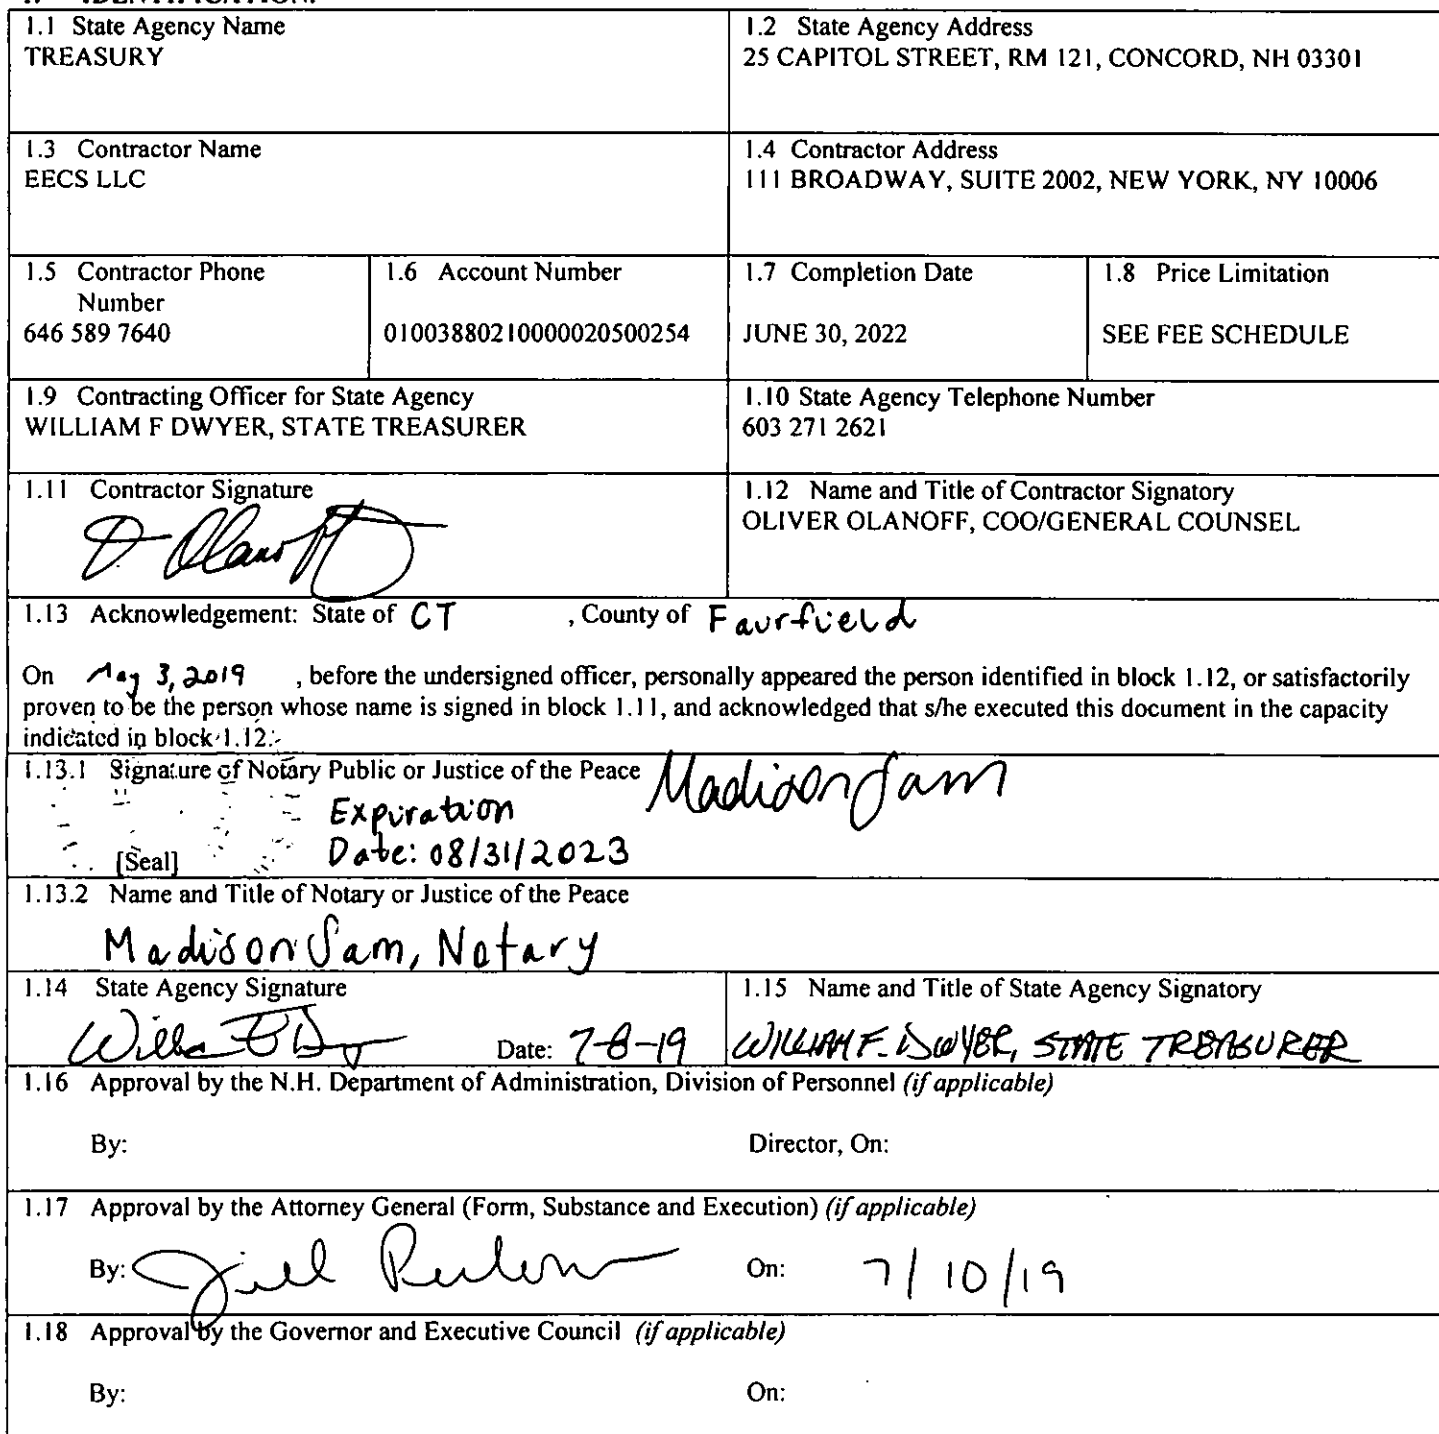 1. IDENTIFICATION.
1.1 State Agency Name
TREASURY
1.2 State Agency Address
25 CAPITOL STREET, RM 121, CONCORD, NH 03301
1.3 Contractor Name
EECS LLC
1.4 Contractor Address
111 BROADWAY, SUITE 2002, NEW YORK, NY 10006
1.5 Contractor Phone
Number
646 589 7640
1.6 Account Number
01003880210000020500254
1.7 Completion Date
JUNE 30, 2022
1.8 Price Limitation
SEE FEE SCHEDULE
1.9 Contracting Officer for State Agency
WILLIAM F DWYER, STATE TREASURER
1.10 State Agency Telephone Number
603 271 2621
1.11 Contractor Signature
O. Olanoff
1.12 Name and Title of Contractor Signatory
OLIVER OLANOFF, COO/GENERAL COUNSEL
1.13 Acknowledgement: State of CT , County of Fairfield
On May 3, 2019 , before the undersigned officer, personally appeared the person identified in block 1.12, or satisfactorily
proven to be the person whose name is signed in block 1.11, and acknowledged that s/he executed this document in the capacity
indicated in block 1.12.
1.13.1 Signature of Notary Public or Justice of the Peace Madison Sam
Expiration
[Seal] Date: 08/31/2023
1.13.2 Name and Title of Notary or Justice of the Peace
Madison Sam, Notary
1.14 State Agency Signature
Date: 7-8-19
1.15 Name and Title of State Agency Signatory
WILLIAM F. DWYER, STATE TREASURER
1.16 Approval by the N.H. Department of Administration, Division of Personnel (if applicable)
By: Director, On:
1.17 Approval by the Attorney General (Form, Substance and Execution) (if applicable)
By: Jill On: 7/10/19
1.18 Approval by the Governor and Executive Council (if applicable)
By: On: